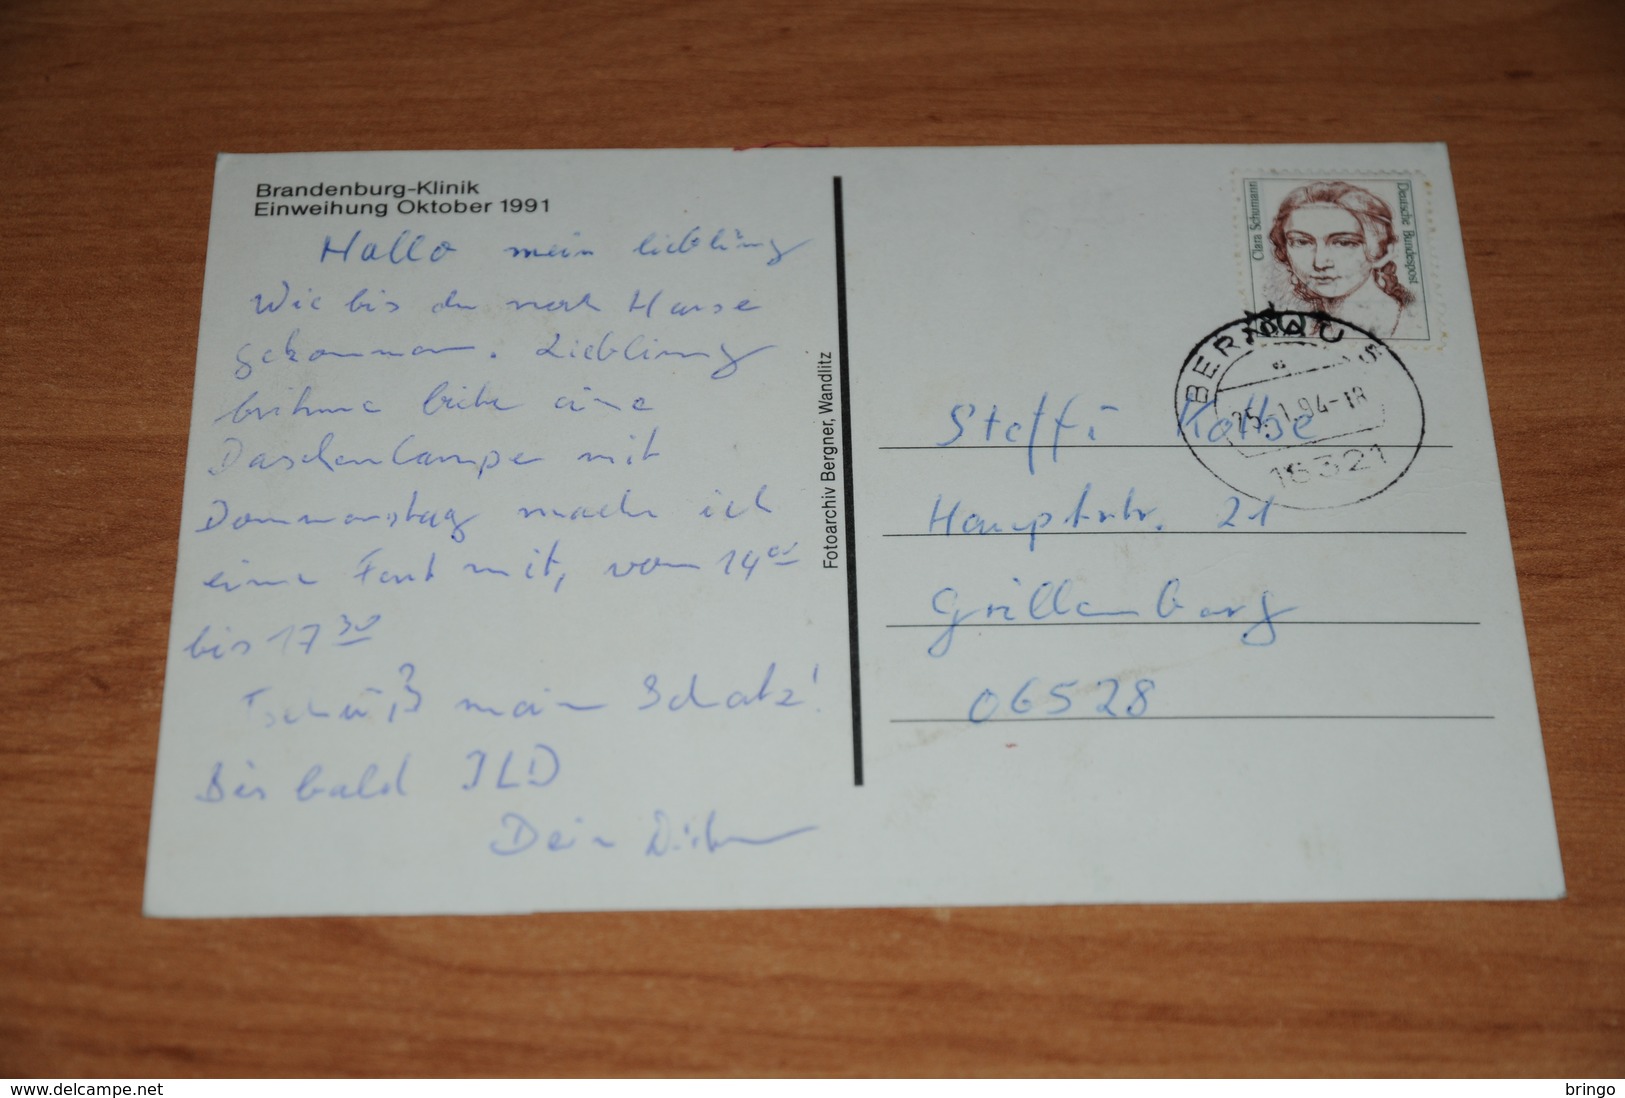 Brandenburg-Klinik
Einweihung Oktober 1991
Hallo mein liebling
Wie bis du nach Hause
gekommen. Liebling
bringe bitte eine
Daschenlampe mit
Donnerstag mache ich
eine Fart mit, von 14 00
bis 17 30
Tschüß mein Schatz!
Bis bald ILD
Dein
Fotoarchiv Bergner, Wandlitz
Clara Schumann
Deutsche Bundespost
BERNAU
25. 1.94-18
16321
Steffi Kolbe
Hauptstr. 21
Grillenberg
06528
www.delcampe.net
bringo